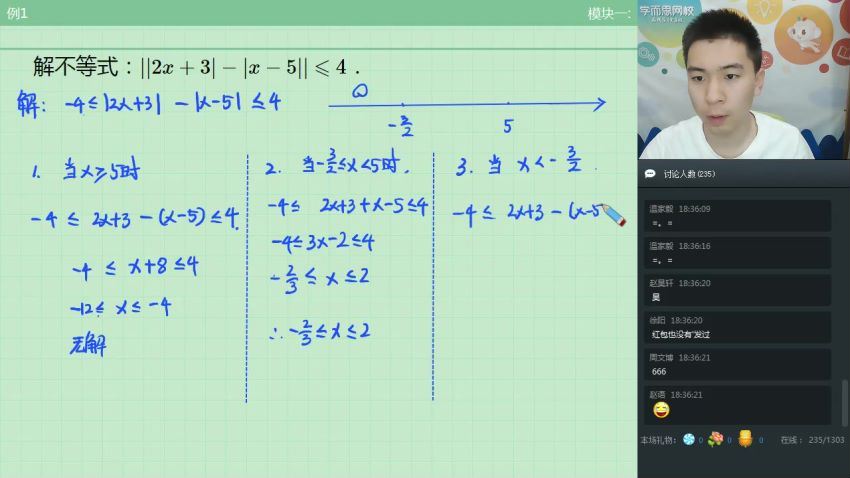 例1
模块一:
解不等式：||2x + 3| − |x − 5|| ⩽ 4．
解: -4≤|2x+3| - |x-5| ≤4
-3/2
5
1. 当x≥5时
-4 ≤ 2x+3 - (x-5) ≤4.
-4 ≤ x+8 ≤4
-12≤ x ≤ -4
无解
2. 当-3/2≤x<5时,
-4≤ 2x+3+x-5≤4
-4≤3x-2≤4
-2/3 ≤ x ≤2
∴ -2/3 ≤x ≤2
3. 当 x<-3/2.
-4 ≤ 2x+3 - (x-5
学而思网校
讨论人数(235)
温家毅 18:36:09
=。=
温家毅 18:36:16
=。=
赵昊轩 18:36:20
昊
徐阳 18:36:20
红包也没有"发过
周文博 18:36:21
666
赵语 18:36:21
本场礼物: 0 0 0 在线： 235/1303